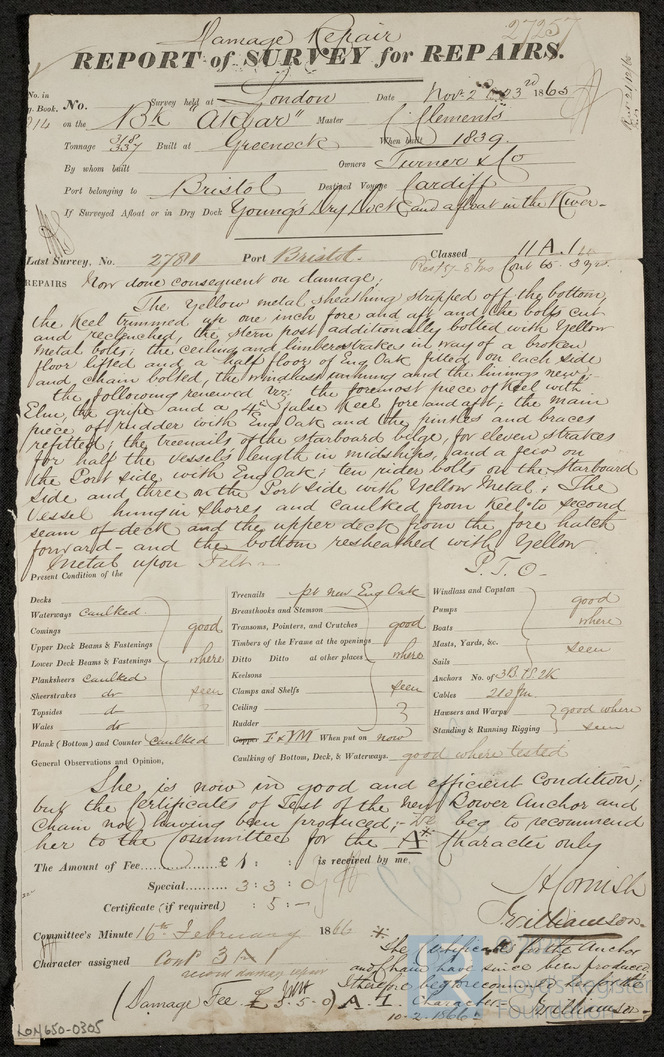 Damage Repair
27257
REPORT of SURVEY for REPAIRS.
No. in
Book.
No. Survey held at London Date Nov. 2 23rd 1865
914 on the Bk "Akbar" Master Clements
Tonnage 318 337 Built at Greenock When built 1839.
By whom built Owners Turner & Co
Port belonging to Bristol Destined Voyage Cardiff
If Surveyed Afloat or in Dry Dock Young's Dry Dock and afloat in the River.
Last Survey, No. 2781 Port Bristol. Classed 11 A. 1
Cont 65. 3 yrs.
REPAIRS Now done consequent on damage,
The Yellow metal sheathing stripped off the bottom,
the Keel trimmed up one inch fore and aft and the bolts cut
and reclenched, the stern post additionally bolted with Yellow
Metal bolts; the ceiling and limberstrakes in way of a broken
floor lifted and a half floor of Eng Oak fitted on each side
and chain bolted, the windlass unhung and the linings new;
the following renewed viz: the foremost piece of Keel with
Elm, the gripe and a 4in false Keel fore and aft; the main
piece of rudder with Eng Oak and the pintles and braces
refitted; the treenails of the starboard bilge, for eleven strakes
for half the vessel's length in midships, and a few on
the Port side with Eng Oak; ten rider bolts on the Starboard
side and three on the Port side with Yellow Metal; The
Vessel hung in shores and caulked from Keel to second
seam of deck and the upper deck from the fore hatch
forward - and the bottom resheathed with Yellow
Metal upon Felt.
P.T.O.
Present Condition of the
Decks
Waterways caulked.
Comings
Upper Deck Beams & Fastenings
Lower Deck Beams & Fastenings
Planksheers caulked
Sheerstrakes do
Topsides do
Wales do
Plank (Bottom) and Counter caulked
good
where
seen
Treenails pt new Eng Oak
Breasthooks and Stemson
Transoms, Pointers, and Crutches
Timbers of the Frame at the openings
Ditto Ditto at other places
Keelsons
Clamps and Shelfs
Ceiling
Rudder
good
where
seen
Copper F & YM When put on now
Windlass and Capstan
Pumps
Boats
Masts, Yards, &c.
Sails
good
where
seen
Anchors No. of 3B. 1S. 2K
Cables 210 fm.
Hawsers and Warps
Standing & Running Rigging
good where
seen
General Observations and Opinion,
Caulking of Bottom, Deck, & Waterways. good where tested
She is now in good and efficient Condition;
but the Certificates of Test of the new Bower Anchor and
Chain not having been produced; We beg to recommend
her to the Committee for the A* Character only
The Amount of Fee £ 1 : : is received by me,
Special 3 : 3 : 0
Certificate (if required) : 5 : -
H Cornish
J. Williamson.
Committee's Minute 16th February 1866
Character assigned Cont 3 A 1
(Damage Fee £ 5.5.0)
* The Certificates for the Anchor
and Chain have since been produced
I therefore beg to recommend her for the
A 1. Character
10-2-1866 Williamson.
LON650-0305
Lloyd's Register
Foundation